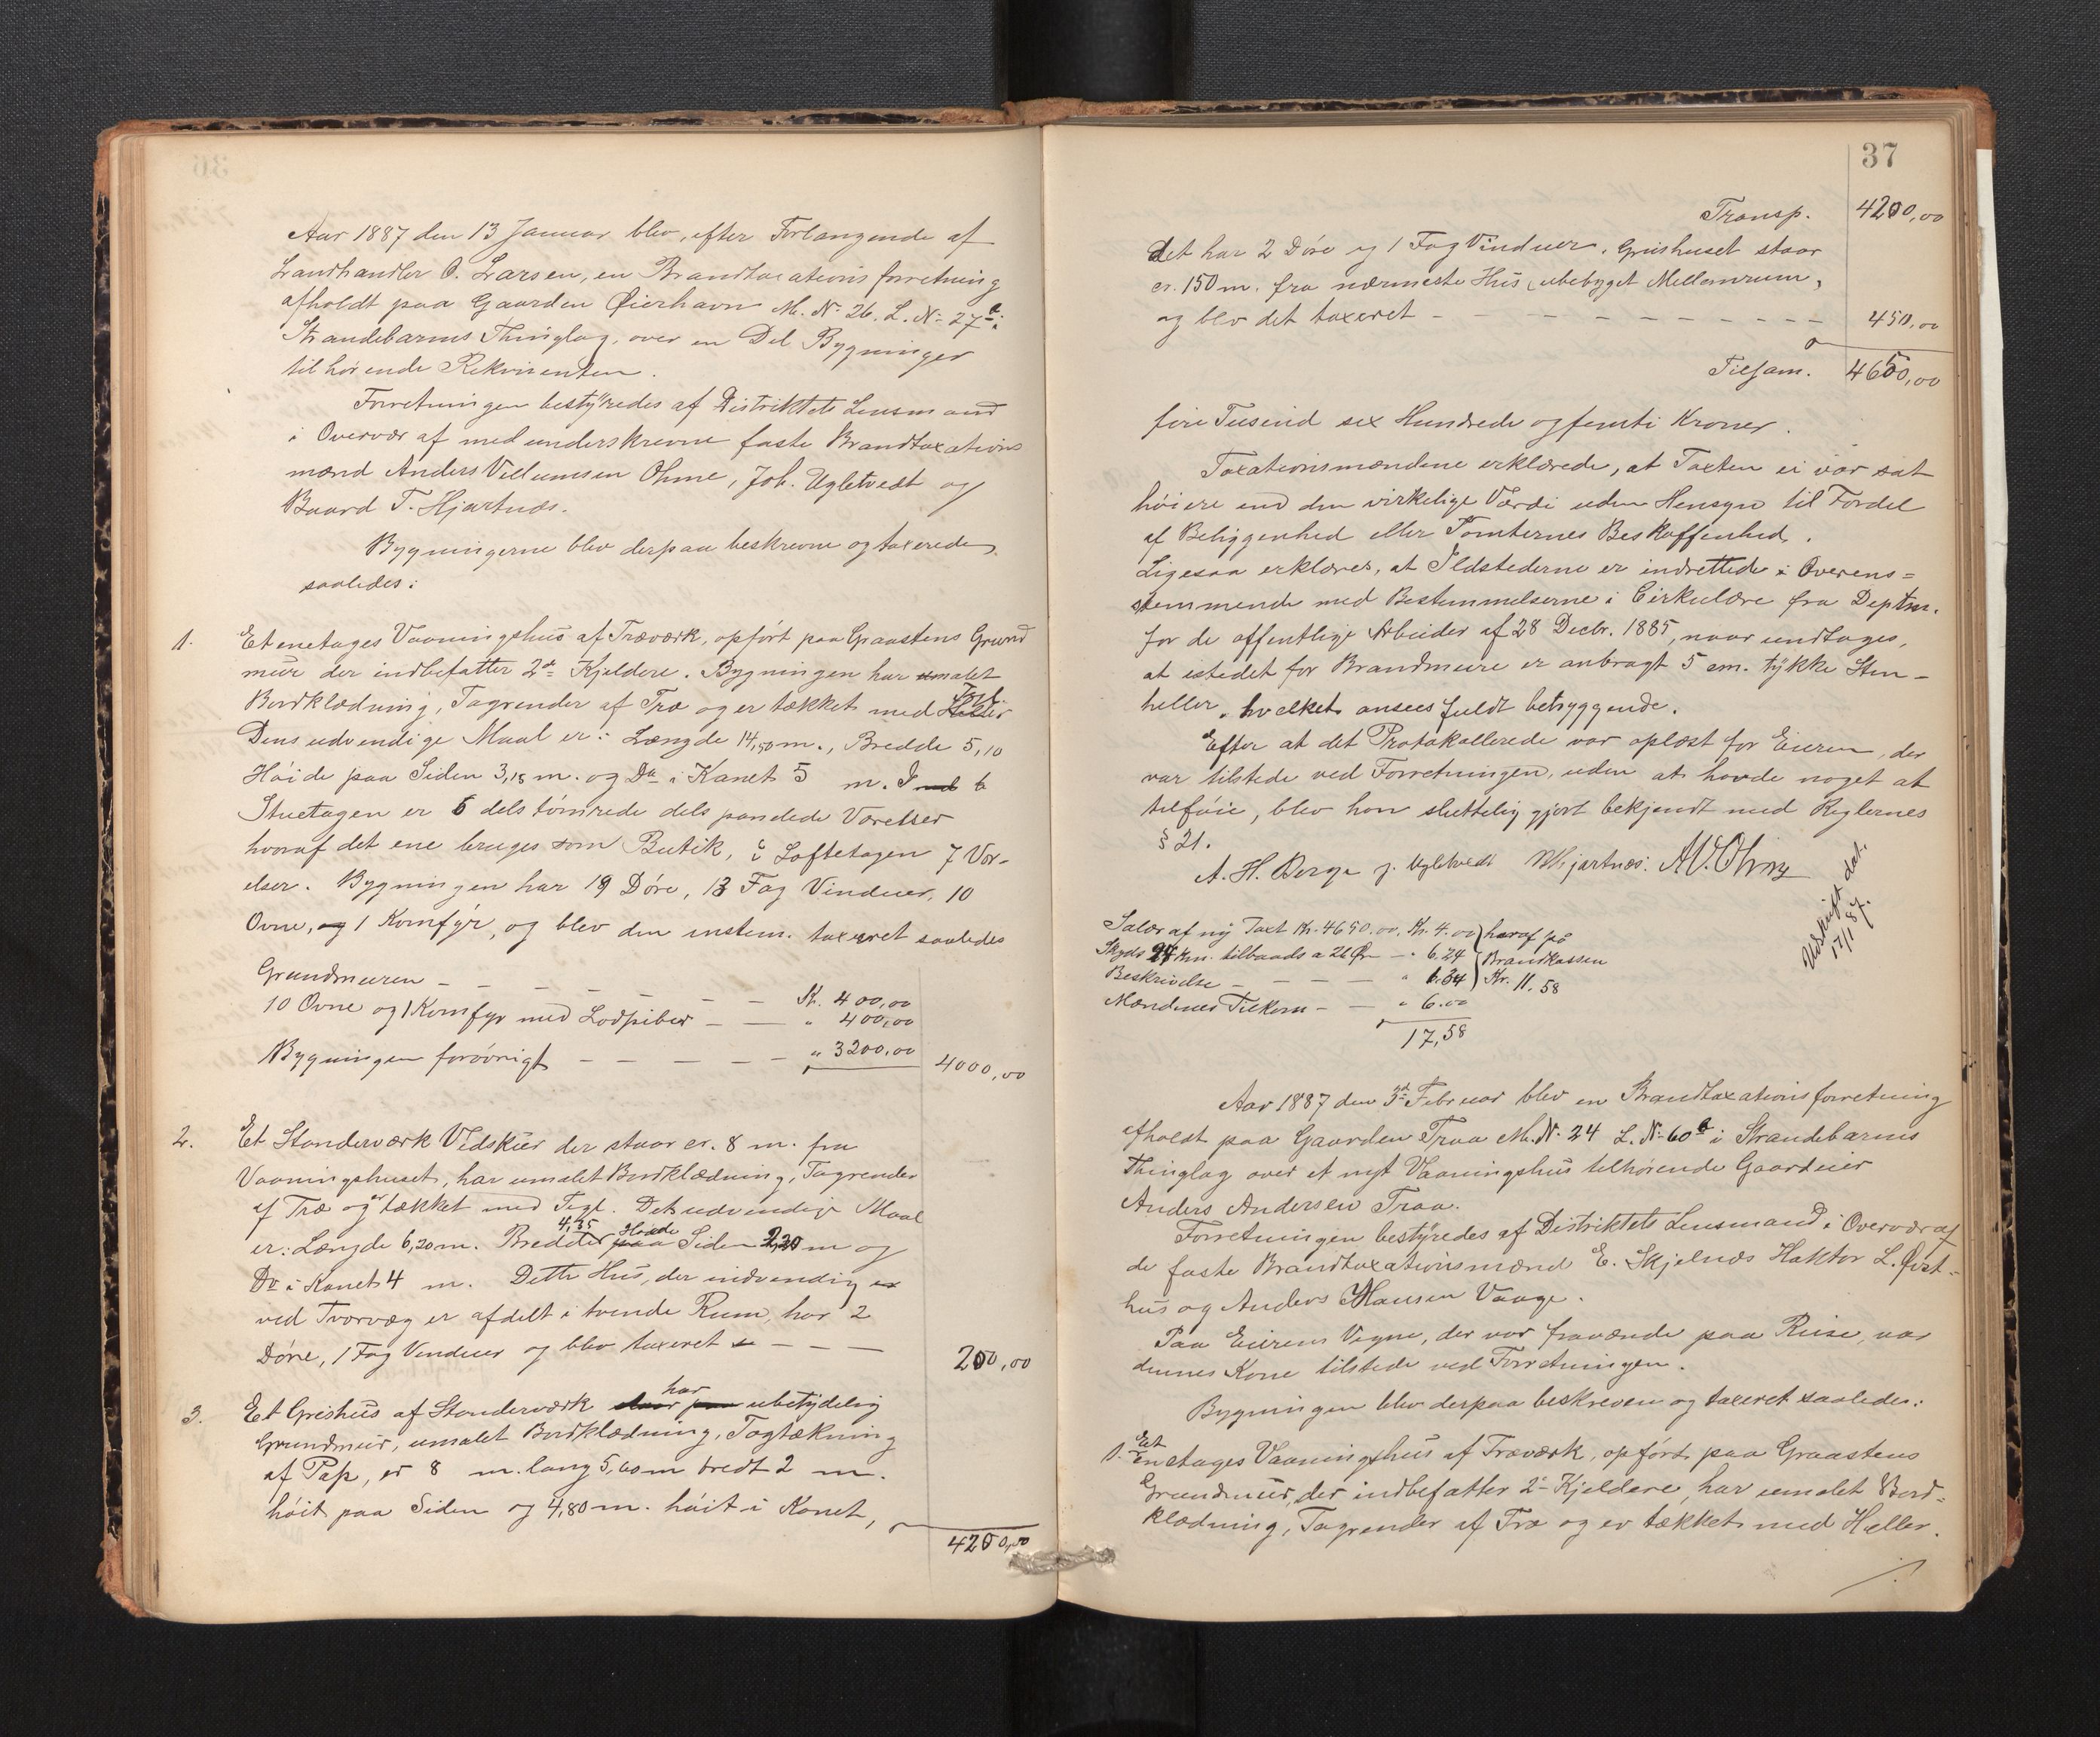 Aar 1887 den 13 Januar blev, efter Forlangende af
Landhandler O. Larsen, en Brandtaxationsforretning
afholdt paa Gaarden Øierhavn M. N. 26. L. N. 27 b i
Strandebarms Thinglag, over en Del Bygninger
tilhørende Rekvirenten.
Forretningen bestyredes af Distriktets Lensmand
i Overvær af medunderskrevne faste Brandtaxations
mænd Anders Villumsen Ohme, Joh. Ugletvedt og
Baard T. Hjartnæs.
Bygningerne blev derpaa beskrevne og taxerede
saaledes:
1. Et enetages Vaaningshus af Træværk, opført paa Graastens Grund
mur der indbefatter 2de Kjeldere. Bygningen har umalet
Bordklædning, Tagrender af Træ og er tækket med Tegl
Dens udvendige Maal er: Længde 14,50 m., Bredde 5,10
Høide paa Siden 3,15 m. og Do i Kanet 5 m. I
Stuetagen er 6 dels tømrede dels panelede Værelser
hvoraf det ene bruges som Butik, i Loftetagen 7 Vær-
elser. Bygningen har 19 Døre, 13 Fag Vinduer, 10
Ovne, og 1 Komfyr, og blev den enstem. taxeret saaledes
Grundmuren - - - - - - Kr. 400,00
10 Ovne og 1 Komfyr med Lodpiber - - " 400,00
Bygningen forøvrigt - - - - - " 3200,00 4000,00
2. Et Standerværk Vedskur der staar cr. 8 m. fra
Vaaningshuset, har umalet Bordklædning, Tagrender
af Træ og er tækket med Tegl. Det udvendige Maal
er: Længde 6,20 m. Bredde 4,35 Høide paa Siden 2,20 m og
Do i Kanet 4 m. Dette Hus, der indvendig
ved Tvervæg er afdelt i tvende Rum, har 2
Døre, 1 Fag Vinduer og blev taxeret - - - 200,00
3. Et Grishus af Standerværk har ubetydelig
Grundmur, umalet Bordklædning, Tagtækning
af Pap, er 8 m. lang 5,60 m bredt 2 m.
høit paa Siden og 4,80 m. høit i Kanet,
4200,00
37
Transp. 4200,00
det har 2 Døre og 1 Fag Vinduer. Grishuset staar
cr. 150 m. fra nærmeste Hus, ubebygget Mellemrum,
og blev det taxeret - - - - - - - - - 450,00
Tilsam. 4650,00
fire Tusind sex Hundrede og femti Kroner.
Taxationsmændene erklærede, at Taxten ei var sat
høiere end den virkelige Værdi uden Hensyn til Fordel
af Beliggenhed eller Tomternes Beskaffenhed.
Ligesaa erklæres, at Ildstederne er indrettede i Overens=
stemmende med Bestemmelserne i Cirkulære fra Deptm.
for de offentlige Arbeider af 28 Decbr. 1885, naar undtages,
at istedet for Brandmure er anbragt 5 cm. tykke Sten-
heller, hvilket ansees fuldt betryggende.
Efter at det Protokollerede var oplæst for Eieren, der
var tilstede ved Forretningen, uden at havde noget at
tilføie, blev han sluttelig gjort bekjendt med Reglernes
§ 21.
A. H. Berge J. Ugletvedt Hjartnæs: AV. Ohme
Udskrift dat. 17/1 87.
Salær af ny Taxt Kr. 4650.00. Kr. 4.00 heraf på
Skyds 24 km. tilbaads a 26 Ør - " 6.24 Brandkassen
Beskrivelse - - - - " 1.34 Kr. 11.58
Mændenes Tilkom - - " 6.00
17,58
Aar 1887 den 3de Februar blev en Brandtaxationsforretning
afholdt paa Gaarden Traa M. N. 24 L. N. 60 b i Strandebarms
Thinglag over et nyt Vaaningshus tilhørende Gaardeier
Anders Andersen Traa.
Forretningen bestyredes af Distriktets Lensmand i Overvær af
de faste Brandtaxationsmænd E. Skjelnæs Haktor L.
hus og Anders Hansen Vaage.
Paa Eierens Vegne, der var fraværende paa Reise, var
dennes Kone tilstede ved Forretningen.
Bygningen blev derpaa beskreven og taxeret saaledes:
1. Et Enetages Vaaningshus af Træværk, opført paa Graastens
Grundmur, der indbefatter 2de Kjeldere, har umalet Bord=
klædning, Tagrender af Træ og er tækket med Heller.